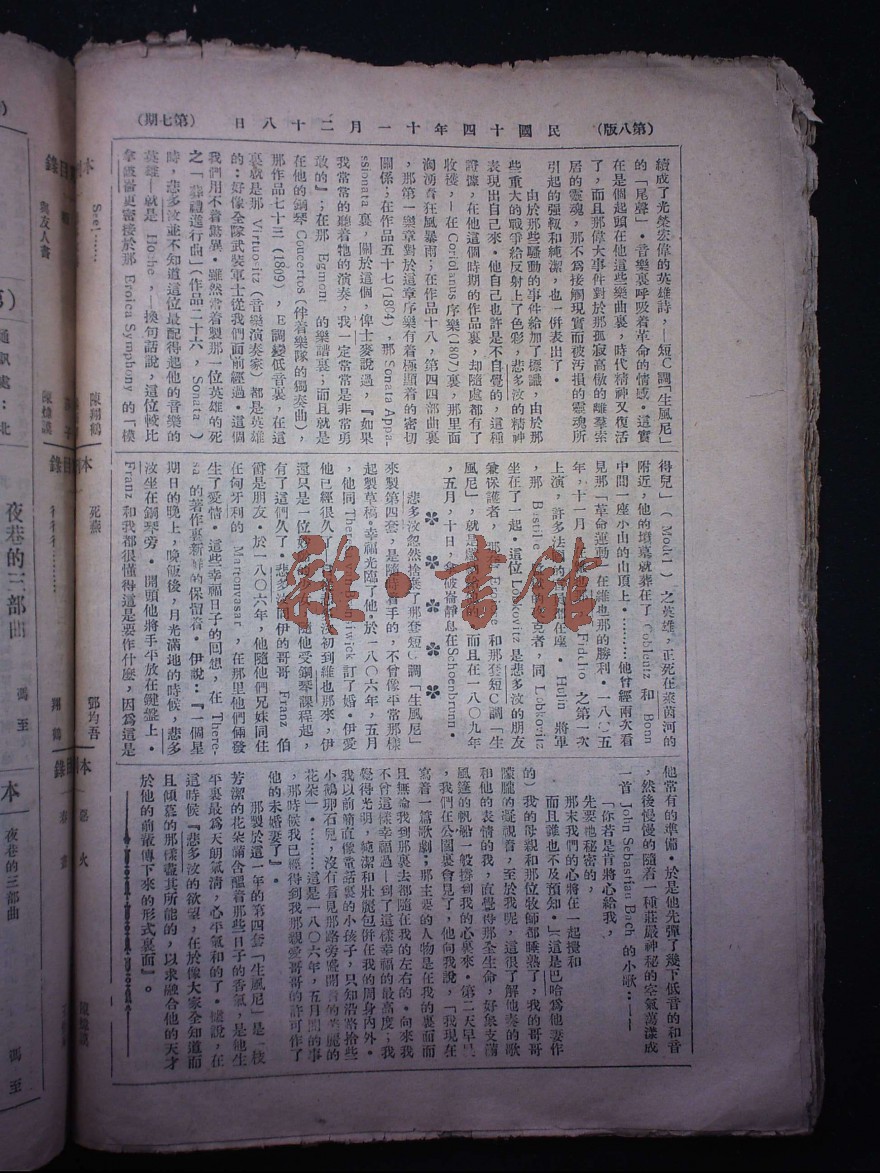 (第八版)
民國十四年十一月二十八日
(第七期)
續成了光榮宏偉的英雄詩,—短C調「生風尼」
的「尾聲」・音樂裏呼吸着革命的情感・這實
在是個起頭在他這些樂曲裏,時代精神又復活
了,而且那偉大事件對於那孤寂高傲的離羣索
居的靈魂,那不爲接觸現實而被污損的靈魂所
引起的強暇和純潔,也一併表出了・
由於那些騷動的事件給加了標識,由於那
些重大的戰爭給反射上了色彩,悲多汝的精神
表現出自己來・他自己也許是不自覺的,這種
證據,在他這個時期的作品裏,却隨處都有了
收穫,—在Coriolanus序樂(1807)裏,那里面
洶湧着狂風暴雨;在作品十八,第四四部曲裏
,那第一樂章對於這章序樂有着極顯着的密切
關係;在作品五十七(1804),那 Sonata Appa-
ssionata 裏,關於這個,俾士麥說過,『如果
我常常的聽着牠的演奏,我一定常常是非常勇
敢的』;在那 Egmont 的樂譜裏;而且就是
在他的鋼琴 Concertos (伴着樂隊的獨奏曲),
那作品七十三(1809),E調變低音裏,在這
裏就是那 Virtuositz (音樂演奏家)都是英雄
的:好像全隊武裝軍士從我們面前經過・這個
我們用不着驚異・雖然當着製那一位英雄的死
之「葬禮進行曲」(作品二十六,Sonata)
時,悲多汝並不知道這位最配得起他的音樂的
英雄—就是 Hoche,—換句話說,這位較比
拿破崙更密接於那 Eroica Symphony 的「模
得兒」(Model)之英雄,正死在萊茵河的
附近,他的墳墓就葬在了 Coblentz 和 Bonn
中間一座小山的山頂上・………他曾經兩次看
見那「革命運動」在維也那的勝利・一八〇五
年,十一月 Fidelio 之第一次
上演,許多法 在座・Hulin 將軍
,那 Bastille 克者,同 Lobkovitz
坐在了一起・這位 Lobkovitz 是悲多汝的朋友
兼保護者,那 和那套短C調「生
風尼」,就是 而且在一八〇九年
,五月,十日,拿破崙靜息在Schoenbrunn・
✽ ✽ ✽ ✽ ✽
悲多汝忽然捨棄了那套短C調「生風尼」
來製第四套,是隨着手的,不曾像平常那樣
起製草稿。幸福光臨了他。於一八〇六年,五月
,他同 Therese Brunswick 訂了婚・伊愛
他已經很久了 汝初到維也那來,伊
還只是一位 隨他受鋼琴課程起,
有了這們久了・悲多汝同伊的哥哥 Franz 伯
爵是朋友・於一八〇六年,他隨他們兄妹同住
在匈牙利的 Martonvasar,在那里他們倆發
生了愛情・這些幸福日子的回想,在 There-
se 的著作裏新鮮的保留着・伊說:『一個星
期日的晚上,晚飯後,月光滿地的時候,悲多
汝坐在鋼琴旁・開頭他將手平放在鍵盤上・
Franz 和我都很懂得這是要作什麼,因爲這是
他常有的準備・於是他先彈了幾下低音的和音
,然後慢慢的隨着一種莊嚴神秘的空氣萬漾成
一首 John Sebastian Bach 的小歌:——
「你若是肯將心給我,
先要祂秘密的,
那末我們的心將在一起攪和
而且誰也不及預知・」(這是巴哈爲他妻作
的)我的母親和那位牧師都睡熟了,我的哥哥
朦朧的凝視着,至於我呢,這很了解他奏的歌
和他的表情的我,直覺得那全生命,好象支滿
風篷的帆船一般撐到我的心裏來・第二天早上
,我們在公園裏會見了,他向我說,「我現在
寫着一篇歌劇;那主要的人物是在我的裏面而
且無論我到那裏去都隨在我的左右的・向來我
不曾這樣幸福過—到了這樣幸福的最高度;我
覺得光明,純潔和壯麗包倂在我的周身內外・
我以前簡直像童話裏的小孩子,只知沿路拾些
小鵝卵石兒,沒有看見那路旁盛開着的美麗的
花朶」・………這是一八〇六年,五月間的事
,那時候我已經得到我那親愛哥哥的許可作了
他的未婚妻了』・
那製於這一年的第四套「生風尼」是一枝
芳潔的花朶滿含醞着那些日子的香氣,是他生
平裏最爲天朗氣清,心平氣和的了・據說,在
這時候『悲多汝的欲望,在於像大家全知道而
且傾慕的那樣盡其所能的,以求融合他的天才
於他的前輩傳下來的形式裏面』。
雜・書館
Seele……
與友人書
陳翔鶴
陳煒謨
死
鄧均吾
夜巷的三部曲
馮至
本
夜巷的三部曲
馮至